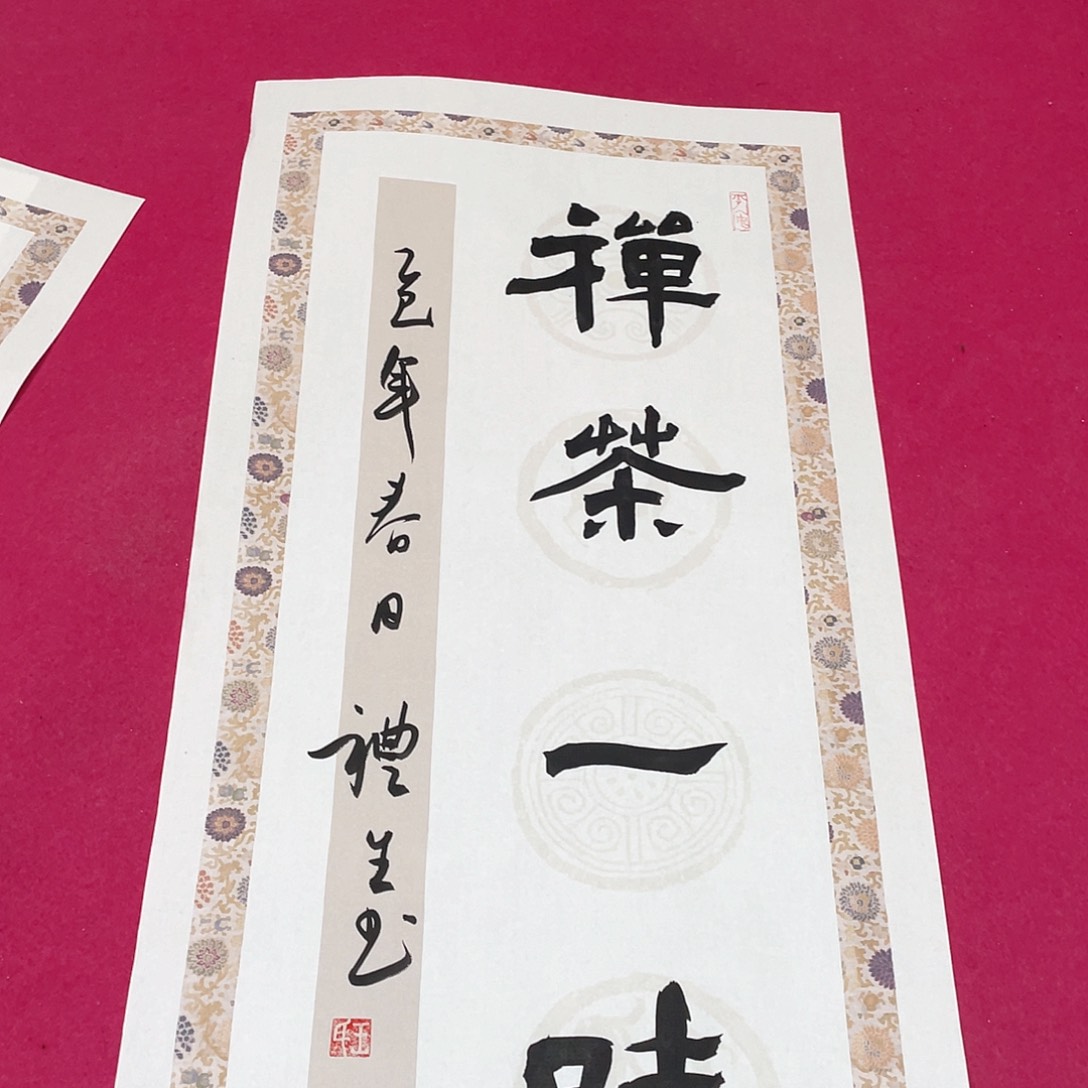 禪茶一味
乙巳年春日禮生书